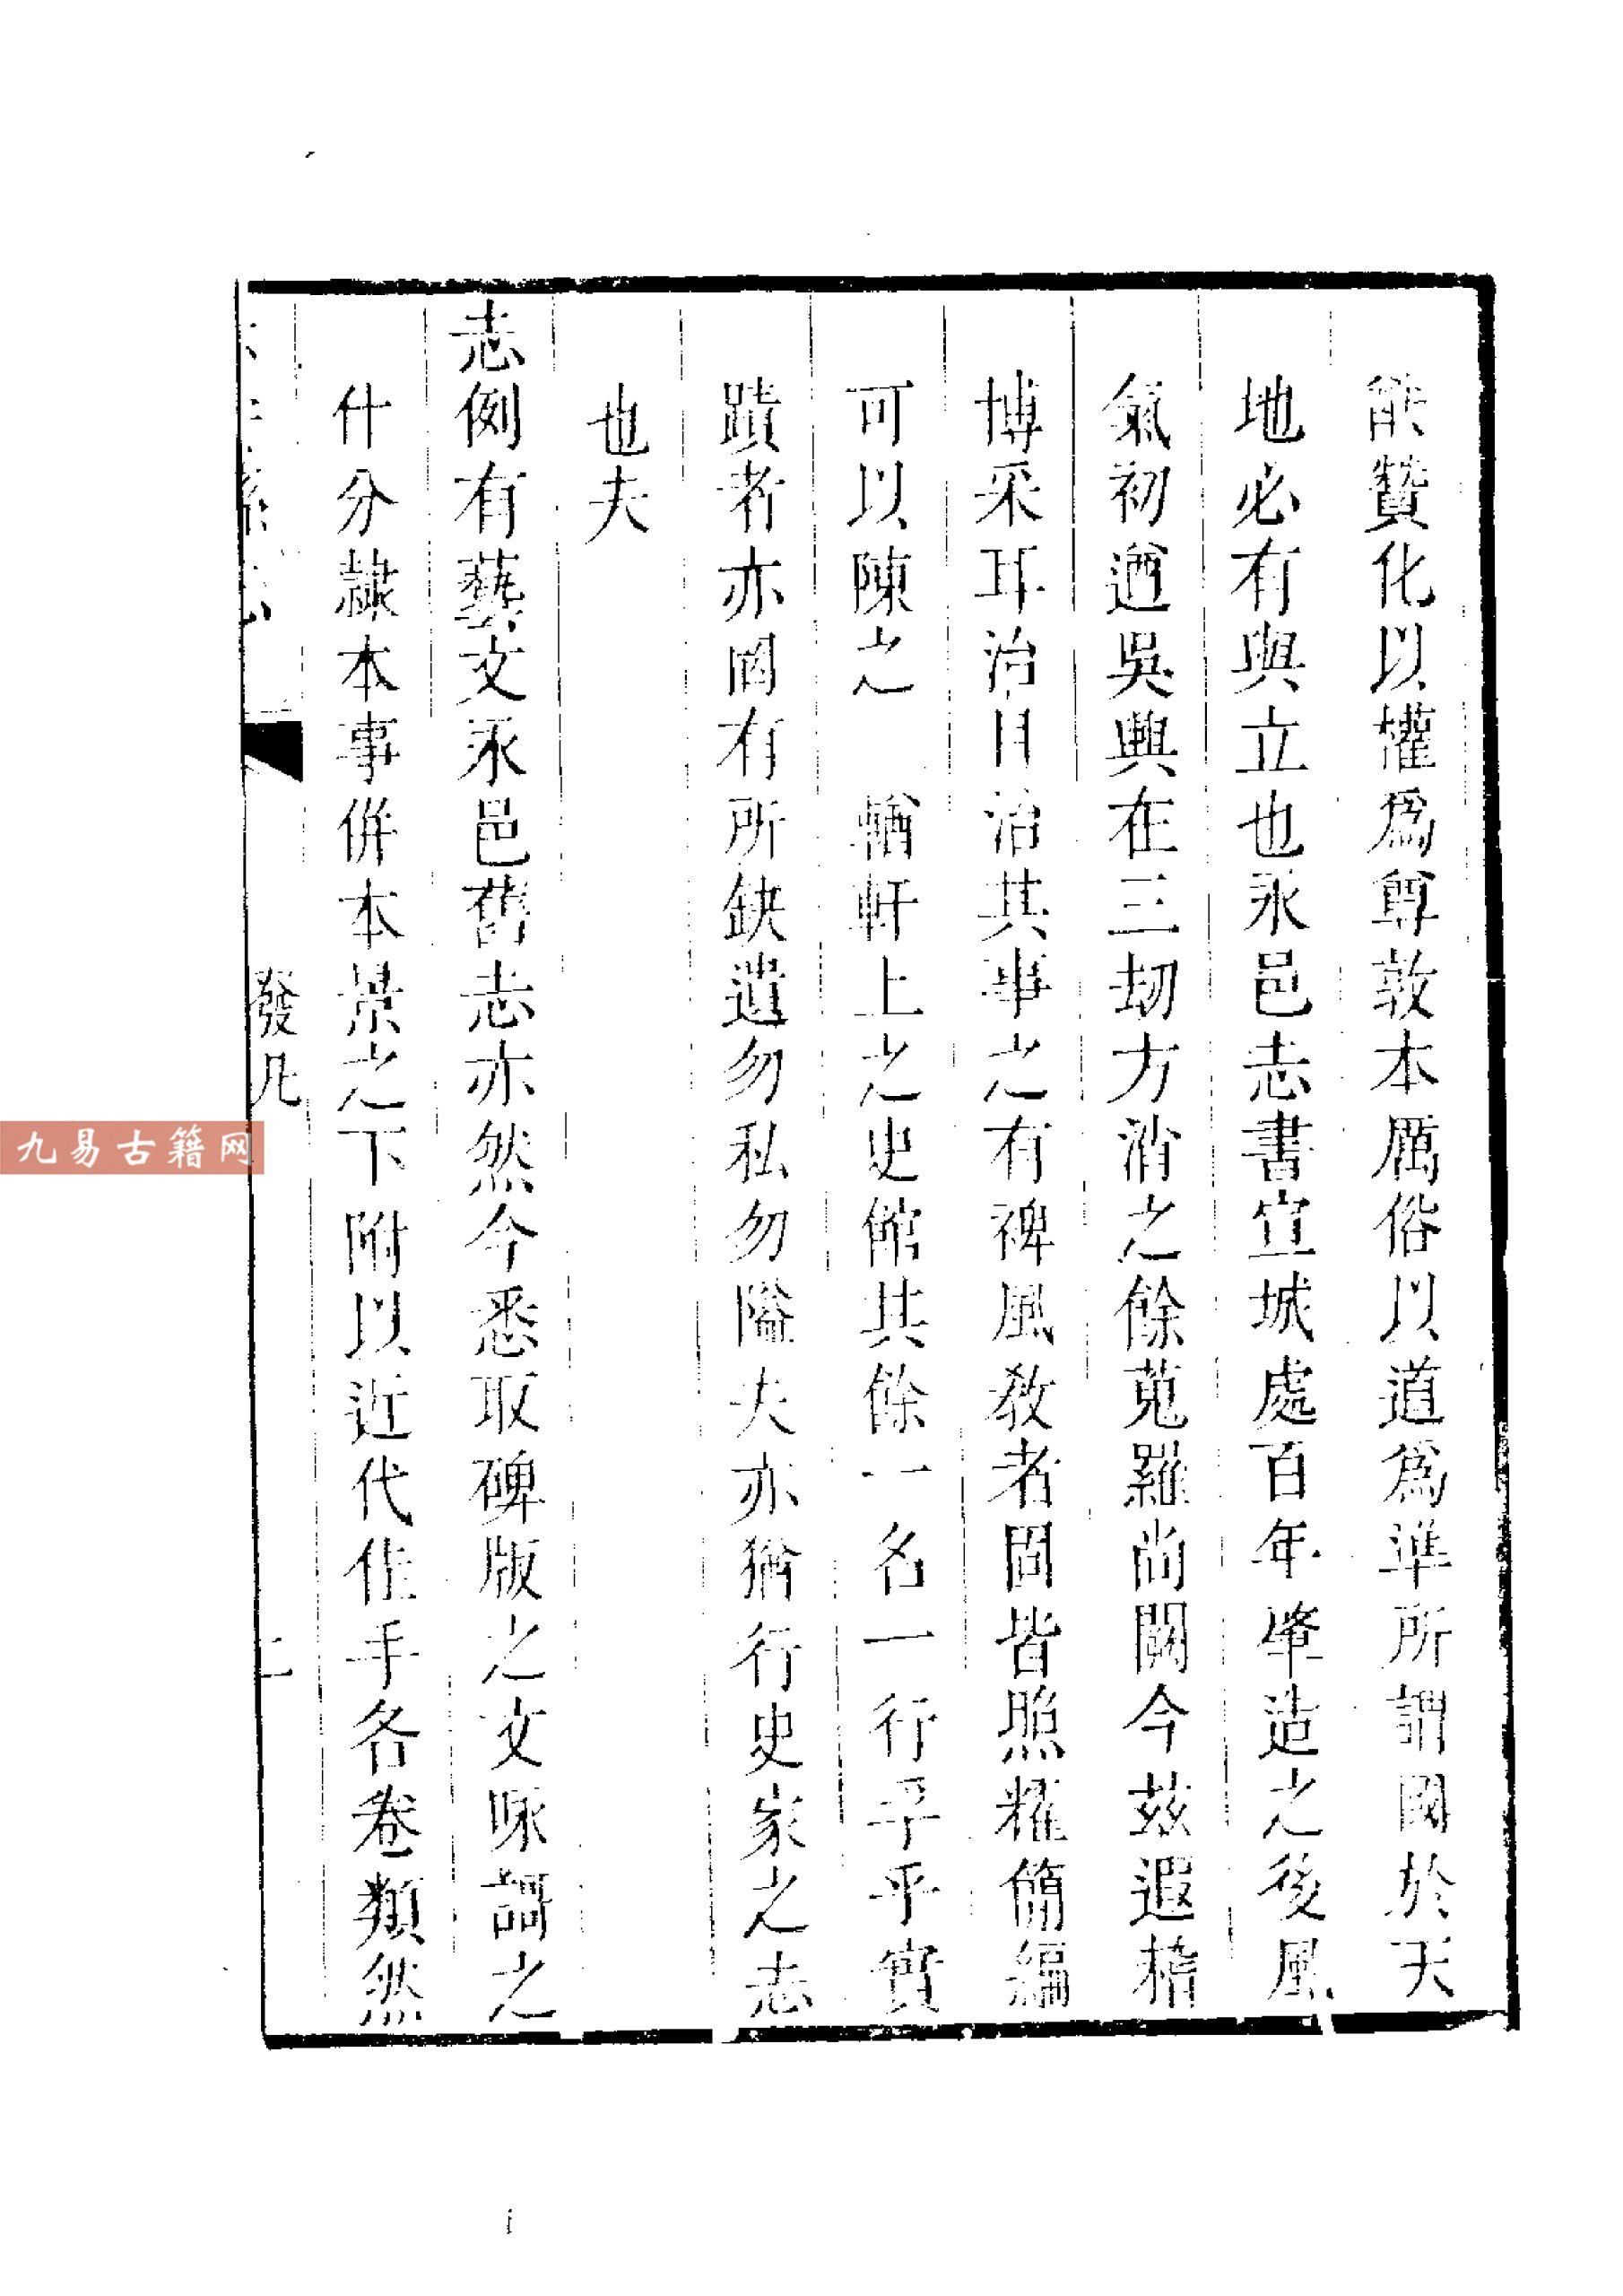 能贊化以權爲尊敦本厲俗以道爲準所謂國於天
地必有與立也永邑志書宣城處百年肇造之後風
氣初遒吳興在三刼方消之餘蒐羅尚闕今茲遐稽
博采耳治目治其事之有裨風敎者固皆照耀簡編
可以陳之　輶軒上之史館共餘一名一行乎乎實
蹟者亦罔有所缺遺勿私勿隘夫亦猶行史家之志
也夫
志例有藝文永邑舊志亦然今悉取碑版之文咏謌之
什分隸本事併本景之下附以近代佳手各卷類然
發凡
二
九易古籍网